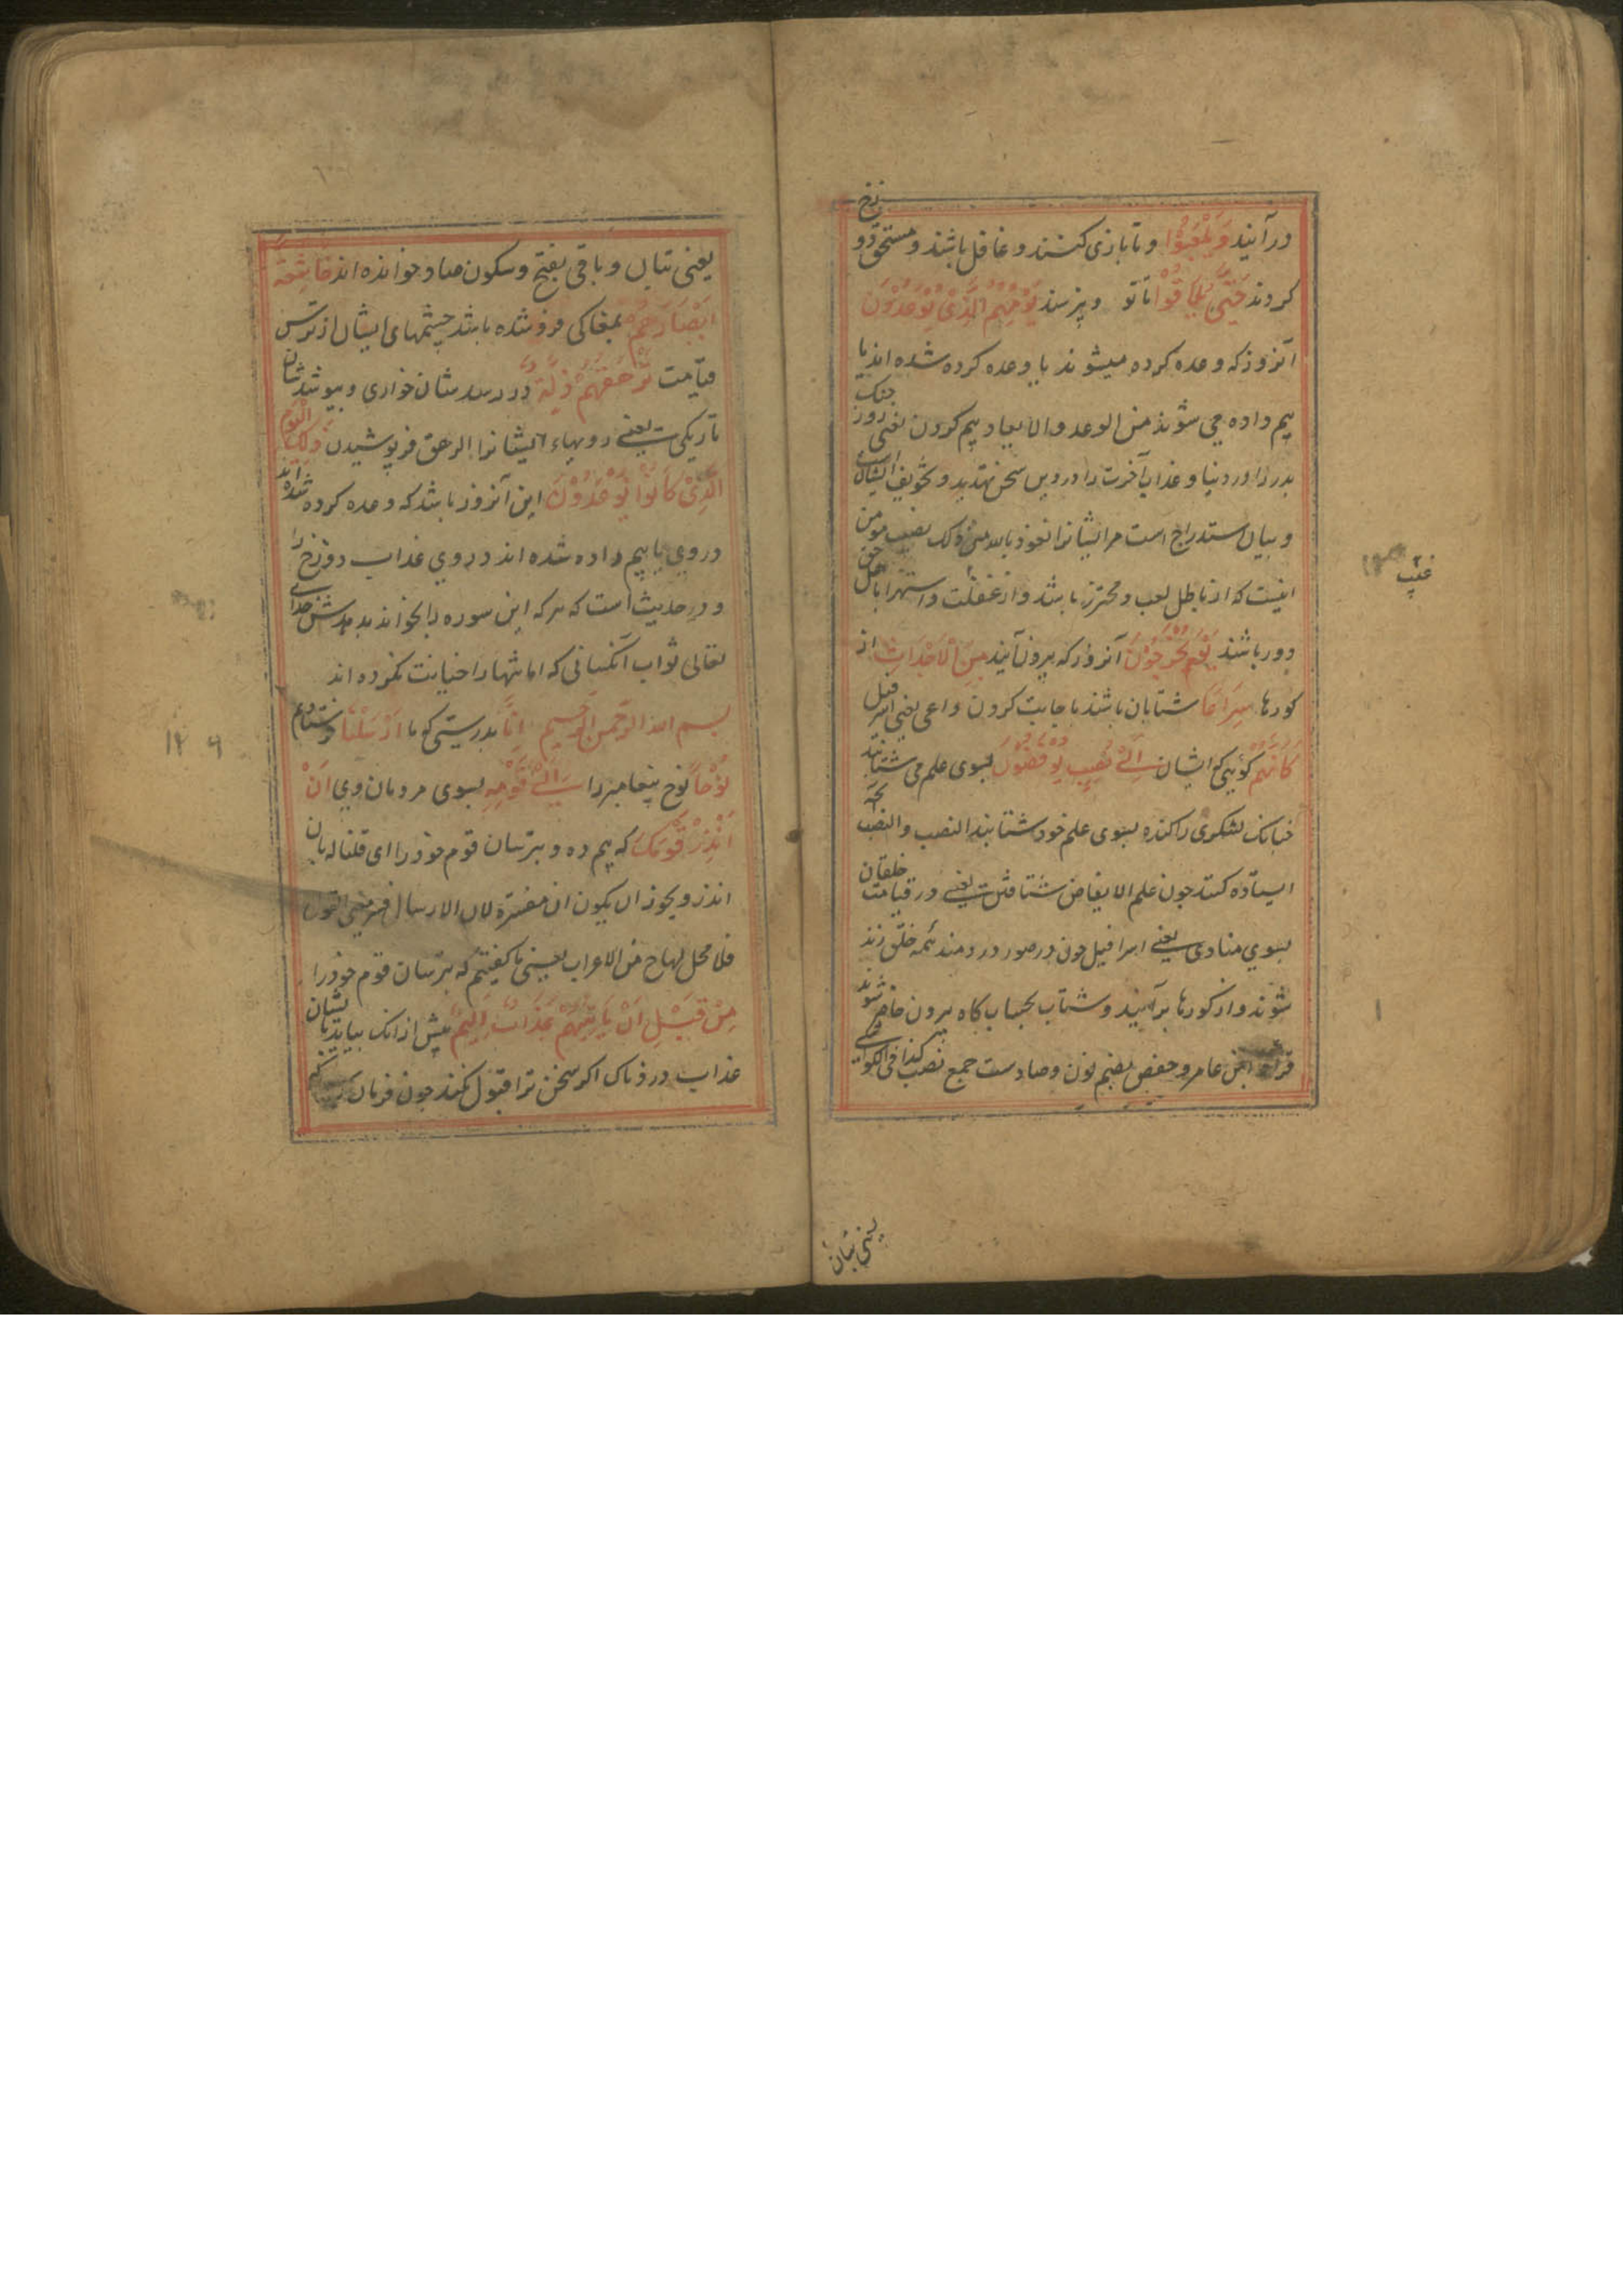 درآیند وَیَلْعَبُوْا و تا بازی کنند و غافل باشند و مستحق دوزخ
کردند حَتّٰی یُلَاقُوْا تا تو و پرسند یَوْمَهُمُ الَّذِیْ یُوْعَدُوْنَ
آنروز که وعده کرده میشوند یا وعده کرده شده اند یا
بیم داده می شوند من الوعد والایعاد بیم کردن یعنی روز جنک
بدر را در دنیا و عذاب آخرت را درین سخن تهدید و تخویف ایشان است
و بیان استدراج است مر ایشانرا نعوذ بالله من ذلک نصیب مومن
اینست که از باطل لعب و محترز باشد و از غفلت و استهزا با اهل حق
دور باشند یَوْمَ یَخْرُجُوْنَ آنروز که بیرون آیند مِنَ الْاَجْدَاثِ از
کورها سِرَاعًا شتابان باشند با جابت کردن داعی یعنی اسرافیل
کَاَنَّهُمْ کوئی که ایشان اِلٰی نُصُبٍ یُوْفِضُوْنَ بسوی علم می شتابند
چنانک لشکری راکنده بسوی علم خود شتابند النصب والنصب
ایستاده کنند چون علم الایفاض شتافتن است یعنی در قیامت خلقان
بسوی منادی یعنی اسرافیل چون در صور در دمند همه خلق زنده
شوند و از کورها برآیند و شتاب بحساب کاه بیرون حاضر شوند
قراءة ابن عامر و حفص بضم نون و صادست جمع نصب کذا فی الکواشی
یعنی بتان
یعنی بتان و باقی بفتح و سکون صاد خوانده اند خَاشِعَةً
اَبْصَارُهُمْ بمغاکی فرو شده باشد چشمهای ایشان از ترس
قیامت تَرْهَقُهُمْ ذِلَّةٌ در رسد شان خواری و بپوشد شان
تاریکی یعنی رویهاء ایشانرا الرهق فرپوشیدن ذٰلِکَ الْیَوْمُ
الَّذِیْ کَانُوْا یُوْعَدُوْنَ این آنروز باشد که وعده کرده شده اند
در وی یا بیم داده شده اند در وی عذاب دوزخ را
و در حدیث است که هر که این سوره را بخواند بدهدش خدای
تعالی ثواب آنکسانی که امانتها را خیانت نکرده اند
بسم الله الرحمن الرحیم اِنَّا بدرستی که ما اَرْسَلْنَا فرستادیم
نُوْحًا نوح پیغامبر را اِلٰی قَوْمِهٖ بسوی مردمان وی اَنْ
اَنْذِرْ قَوْمَکَ که بیم ده و بترسان قوم خود را ای قلنا له بان
انذر و یجوز ان یکون ان مفسرة لان الارسال فیه معنی القول
فلا محل لهاح من الاعراب یعنی ما کفتیم که بترسان قوم خود را
مِنْ قَبْلِ اَنْ یَاْتِیَهُمْ عَذَابٌ اَلِیْمٌ پیش ازانک بیاید بایشان
عذاب دردناک اکر سخن ترا قبول نکنند چون فرمان